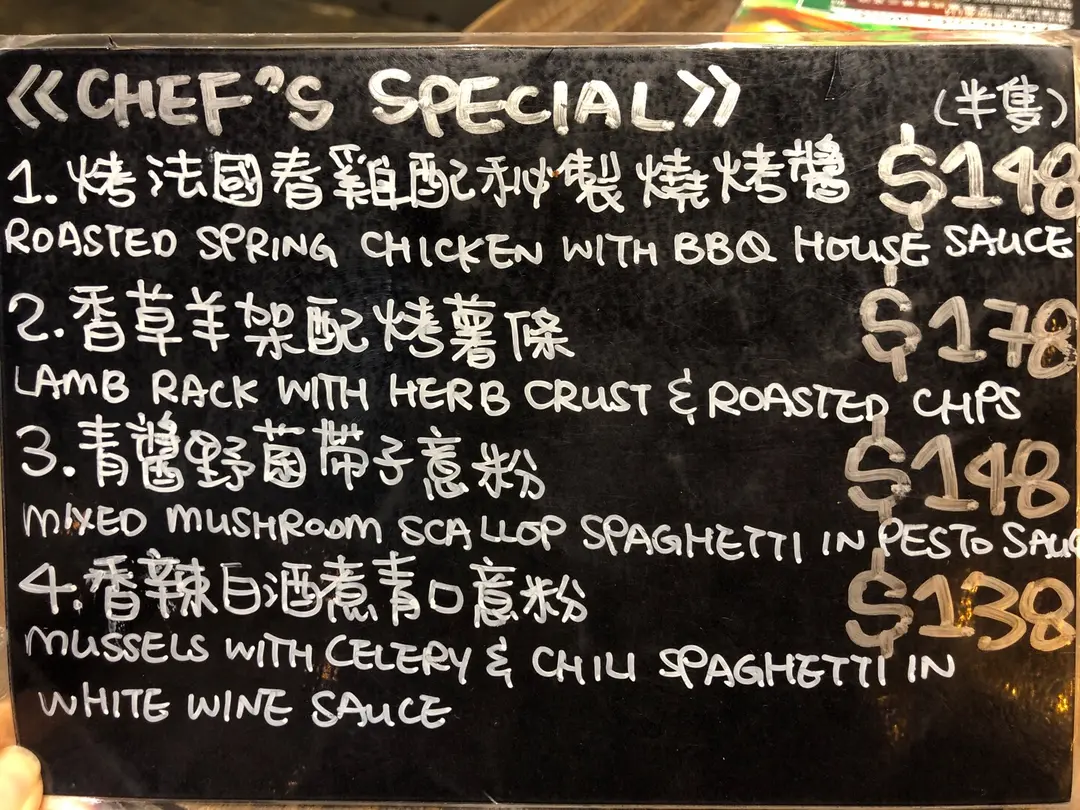 《CHEF"S SPECIAL》 (半隻)
1. 烤法國春雞配秘製燒烤醬 $148
ROASTED SPRING CHICKEN WITH BBQ HOUSE SAUCE
2. 香草羊架配烤薯條 $178
LAMB RACK WITH HERB CRUST & ROASTED CHPS
3. 青醬野菌帶子意粉 $148
MIXED MUSHROOM SCALLOP SPAGHETTI IN PESTO SAUC
4. 香辣白酒煮青口意粉 $138
MUSSELS WITH CELERY & CHILI SPAGHETTI IN
WHITE WINE SAUCE